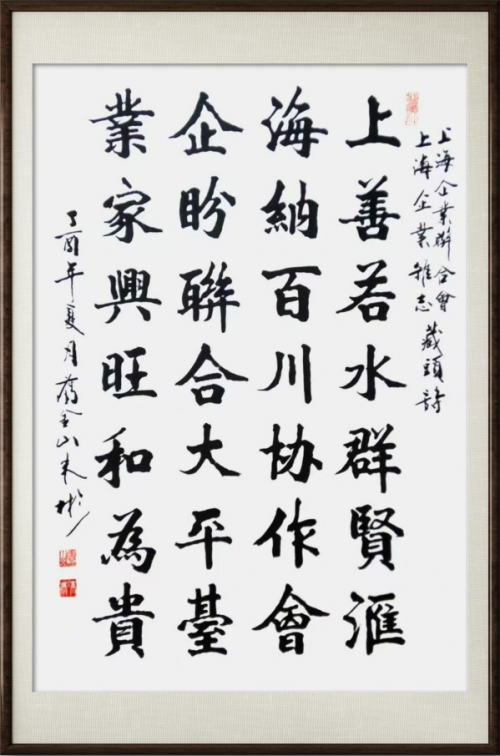 上海企業聯合會
上海企業雜志 藏頭詩
上善若水群賢滙
海納百川協作會
企盼聯合大平臺
業家興旺和為貴
丁酉年夏月舊金山彬